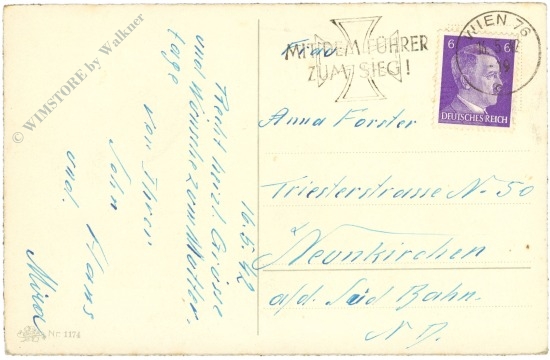 © WIMSTORE by Walkner
MIT DEM FÜHRER
ZUM SIEG!
WIEN 76
6 6
DEUTSCHES REICH
Frau
Anna Forster
Triesterstrasse N- 50
Neunkirchen
a/d. Süd Bahn.
N D.
16.5.42
Recht herzl. Grüsse
und Wünsche zum Mutter-
tage
von Ihrem
Sohn
Hans
und
Nr. 1174